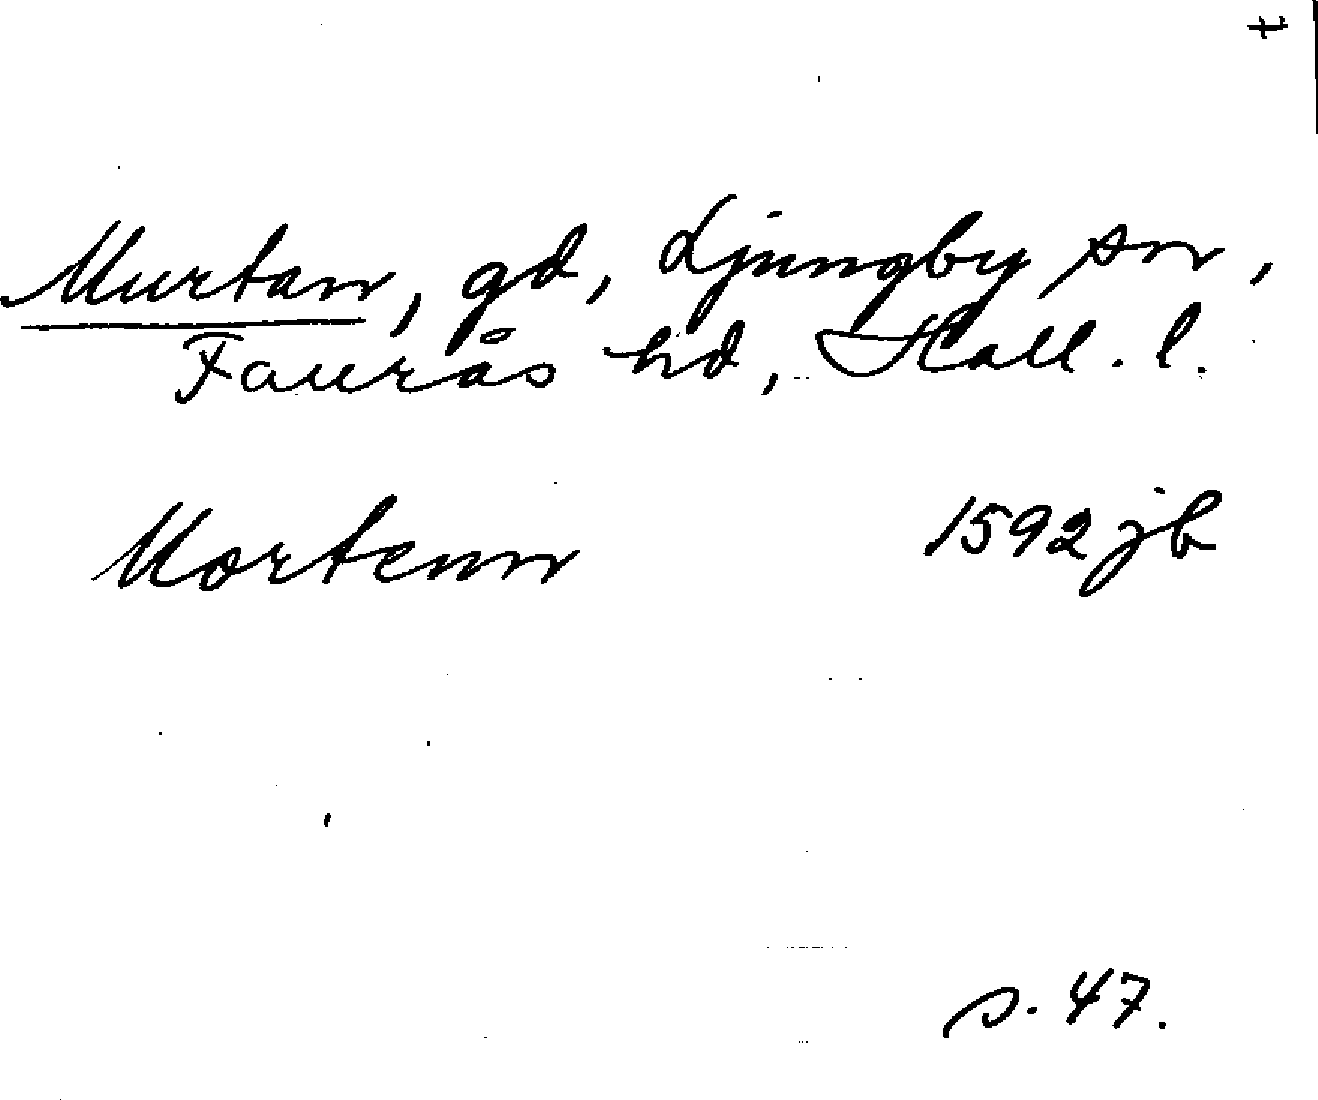 Murtan, gd, Ljungby sn,
Faurås hd, Hall. l.
Mortenn 1592 jb
s. 47.